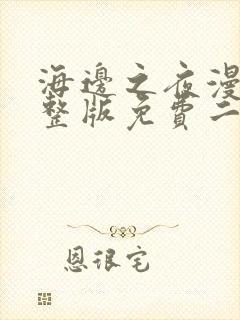 海邊之夜漫
整版免費二
恩很宅